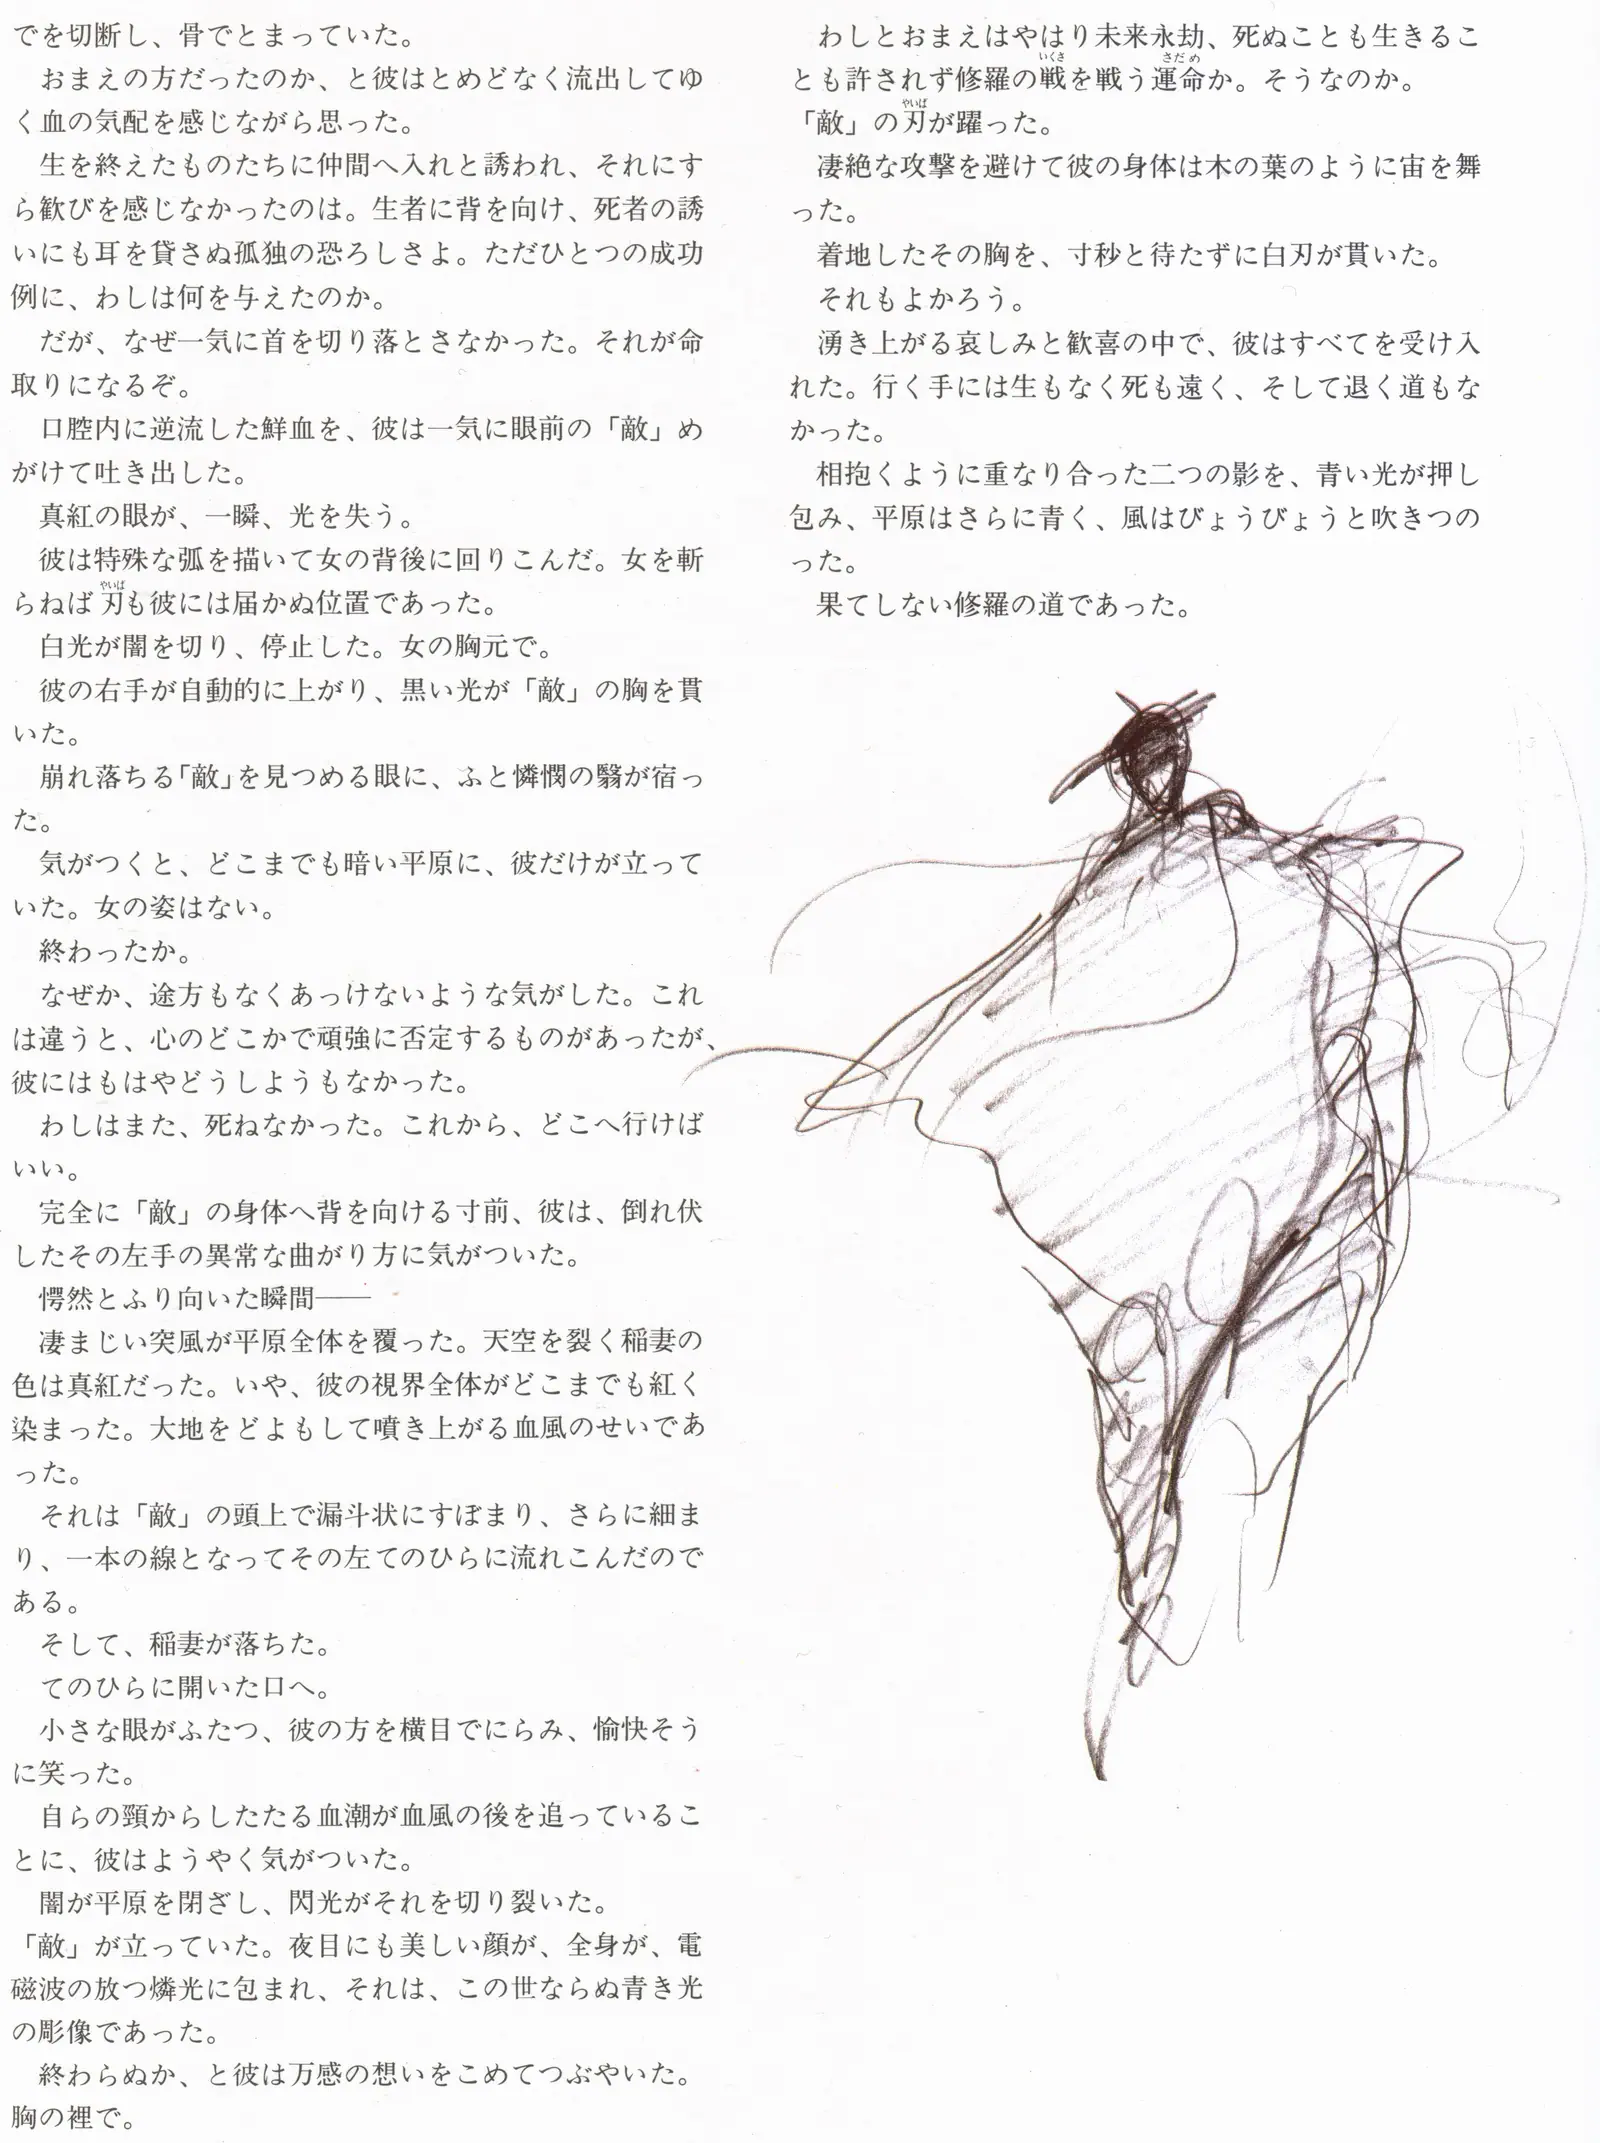 でを切断し、骨でとまっていた。
おまえの方だったのか、と彼はとめどなく流出してゆ
く血の気配を感じながら思った。
生を終えたものたちに仲間へ入れと誘われ、それにす
ら歓びを感じなかったのは。生者に背を向け、死者の誘
いにも耳を貸さぬ孤独の恐ろしさよ。ただひとつの成功
例に、わしは何を与えたのか。
だが、なぜ一気に首を切り落とさなかった。それが命
取りになるぞ。
口腔内に逆流した鮮血を、彼は一気に眼前の「敵」め
がけて吐き出した。
真紅の眼が、一瞬、光を失う。
彼は特殊な弧を描いて女の背後に回りこんだ。女を斬
やいば
らねば刃も彼には届かぬ位置であった。
白光が闇を切り、停止した。女の胸元で。
彼の右手が自動的に上がり、黒い光が「敵」の胸を貫
いた。
崩れ落ちる「敵」を見つめる眼に、ふと憐憫の翳が宿っ
た。
気がつくと、どこまでも暗い平原に、彼だけが立って
いた。女の姿はない。
終わったか。
なぜか、途方もなくあっけないような気がした。これ
は違うと、心のどこかで頑強に否定するものがあったが、
彼にはもはやどうしようもなかった。
わしはまた、死ねなかった。これから、どこへ行けば
いい。
完全に「敵」の身体へ背を向ける寸前、彼は、倒れ伏
したその左手の異常な曲がり方に気がついた。
愕然とふり向いた瞬間――
凄まじい突風が平原全体を覆った。天空を裂く稲妻の
色は真紅だった。いや、彼の視界全体がどこまでも紅く
染まった。大地をどよもして噴き上がる血風のせいであ
った。
それは「敵」の頭上で漏斗状にすぼまり、さらに細ま
り、一本の線となってその左てのひらに流れこんだので
ある。
そして、稲妻が落ちた。
てのひらに開いた口へ。
小さな眼がふたつ、彼の方を横目でにらみ、愉快そう
に笑った。
自らの頸からしたたる血潮が血風の後を追っているこ
とに、彼はようやく気がついた。
闇が平原を閉ざし、閃光がそれを切り裂いた。
「敵」が立っていた。夜目にも美しい顔が、全身が、電
磁波の放つ燐光に包まれ、それは、この世ならぬ青き光
の彫像であった。
終わらぬか、と彼は万感の想いをこめてつぶやいた。
胸の裡で。
わしとおまえはやはり未来永劫、死ぬことも生きるこ
いくさ さだめ
とも許されず修羅の戦を戦う運命か。そうなのか。
やいば
「敵」の刃が躍った。
凄絶な攻撃を避けて彼の身体は木の葉のように宙を舞
った。
着地したその胸を、寸秒と待たずに白刃が貫いた。
それもよかろう。
湧き上がる哀しみと歓喜の中で、彼はすべてを受け入
れた。行く手には生もなく死も遠く、そして退く道もな
かった。
相抱くように重なり合った二つの影を、青い光が押し
包み、平原はさらに青く、風はびょうびょうと吹きつの
った。
果てしない修羅の道であった。